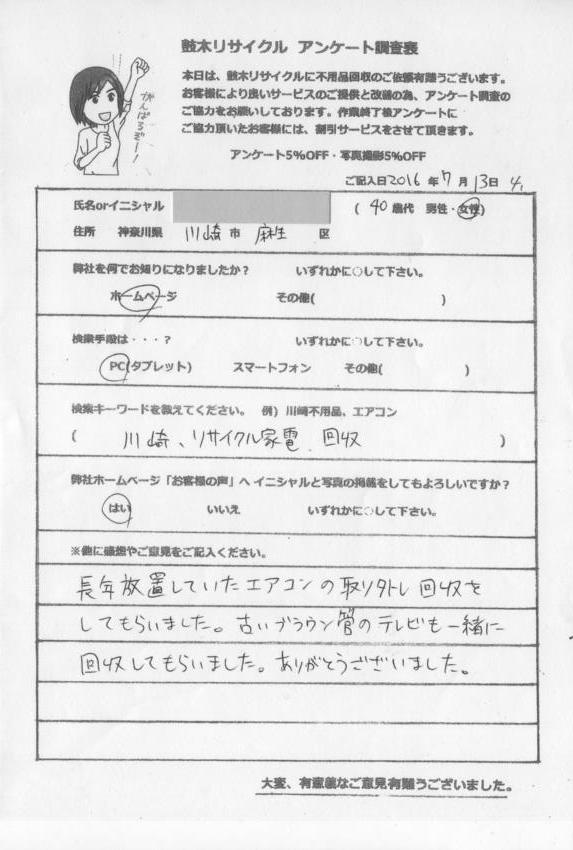 鼓木リサイクル アンケート調査表
本日は、鼓木リサイクルに不用品回収のご依頼有難うございます。
お客様により良いサービスのご提供と改善の為、アンケート調査の
ご協力をお願いしております。作業終了後アンケートに
ご協力頂いたお客様には、割引サービスをさせて頂きます。
がんばるぞー!
アンケート5%OFF・写真撮影5%OFF
ご記入日2016年7月13日
氏名orイニシャル ( 40歳代 男性・女性)
住所 神奈川県 川崎 市 麻生 区
弊社を何でお知りになりましたか? いずれかに○して下さい。
ホームページ その他( )
検索手段は・・・? いずれかに○して下さい。
PC(タブレット) スマートフォン その他( )
検索キーワードを教えてください。 例)川崎不用品、エアコン
( 川崎、リサイクル家電 回収 )
弊社ホームページ「お客様の声」へ イニシャルと写真の掲載をしてもよろしいですか?
はい いいえ いずれかに○して下さい。
※他に感想やご意見をご記入ください。
長年放置していたエアコンの取り外し回収を
してもらいました。古いブラウン管のテレビも一緒に
回収してもらいました。ありがとうございました。
大変、有意義なご意見有難うございました。